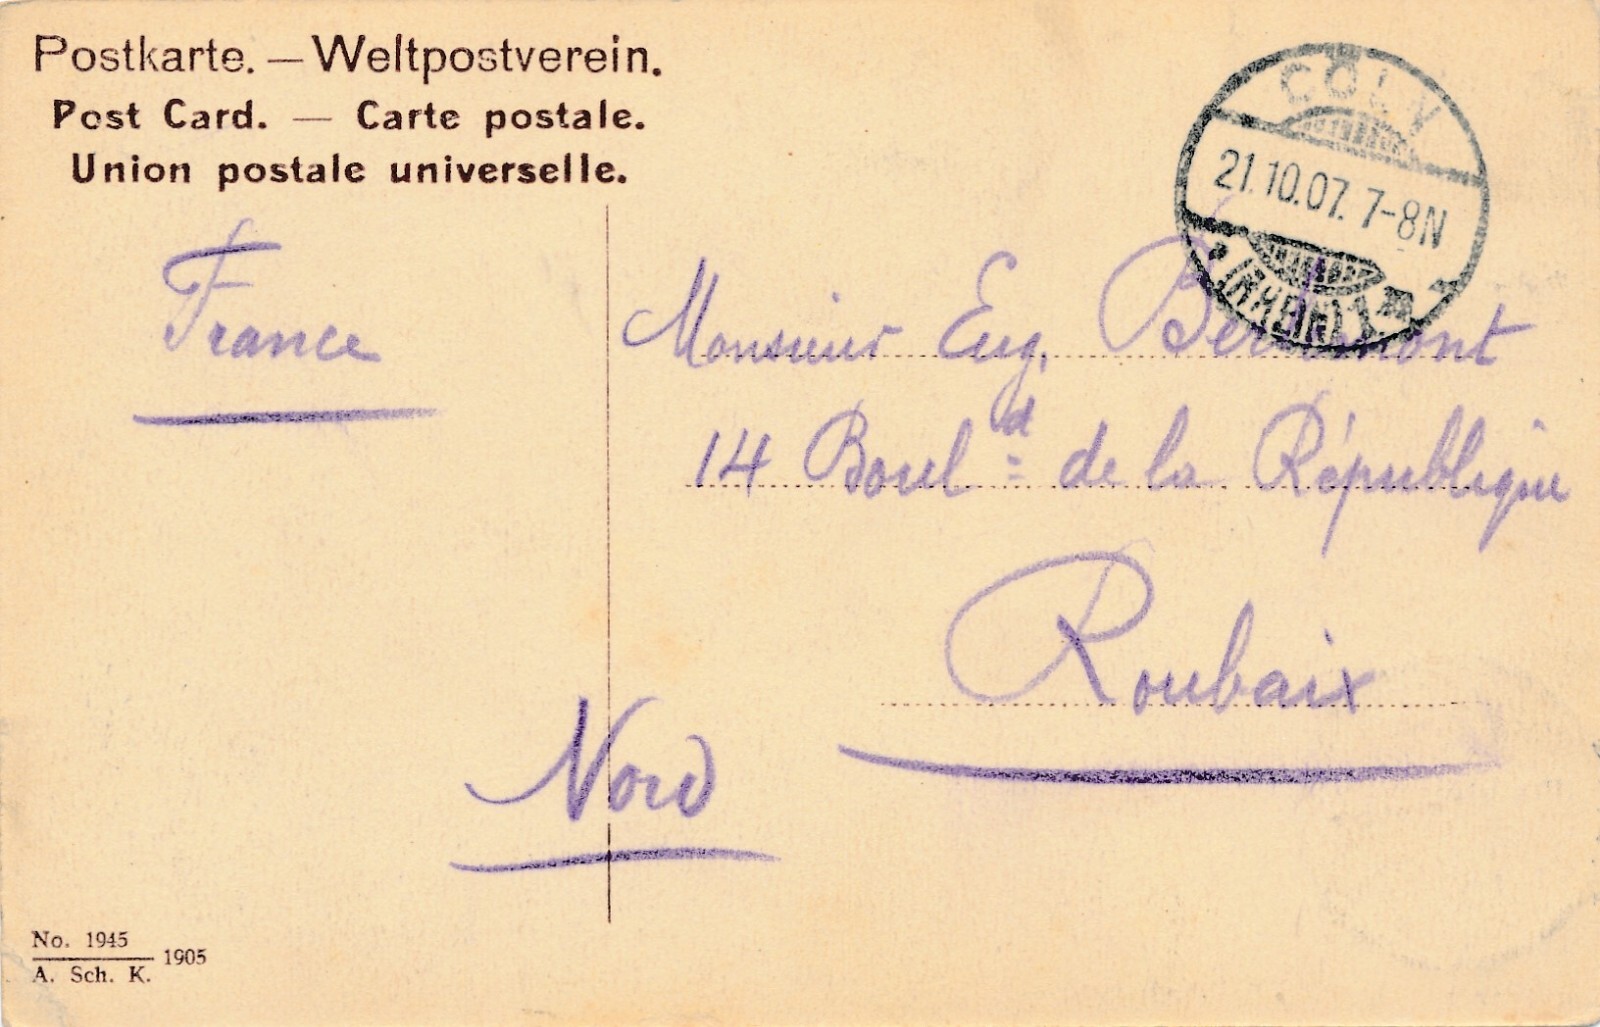 Postkarte. — Weltpostverein.
Post Card. — Carte postale.
Union postale universelle.
CÖLN
21.10.07. 7-8N
(RHEIN) 1
France
Monsieur Eug.
14 Boul^d de la République
Roubaix
Nord
No. 1945
A. Sch. K.
1905